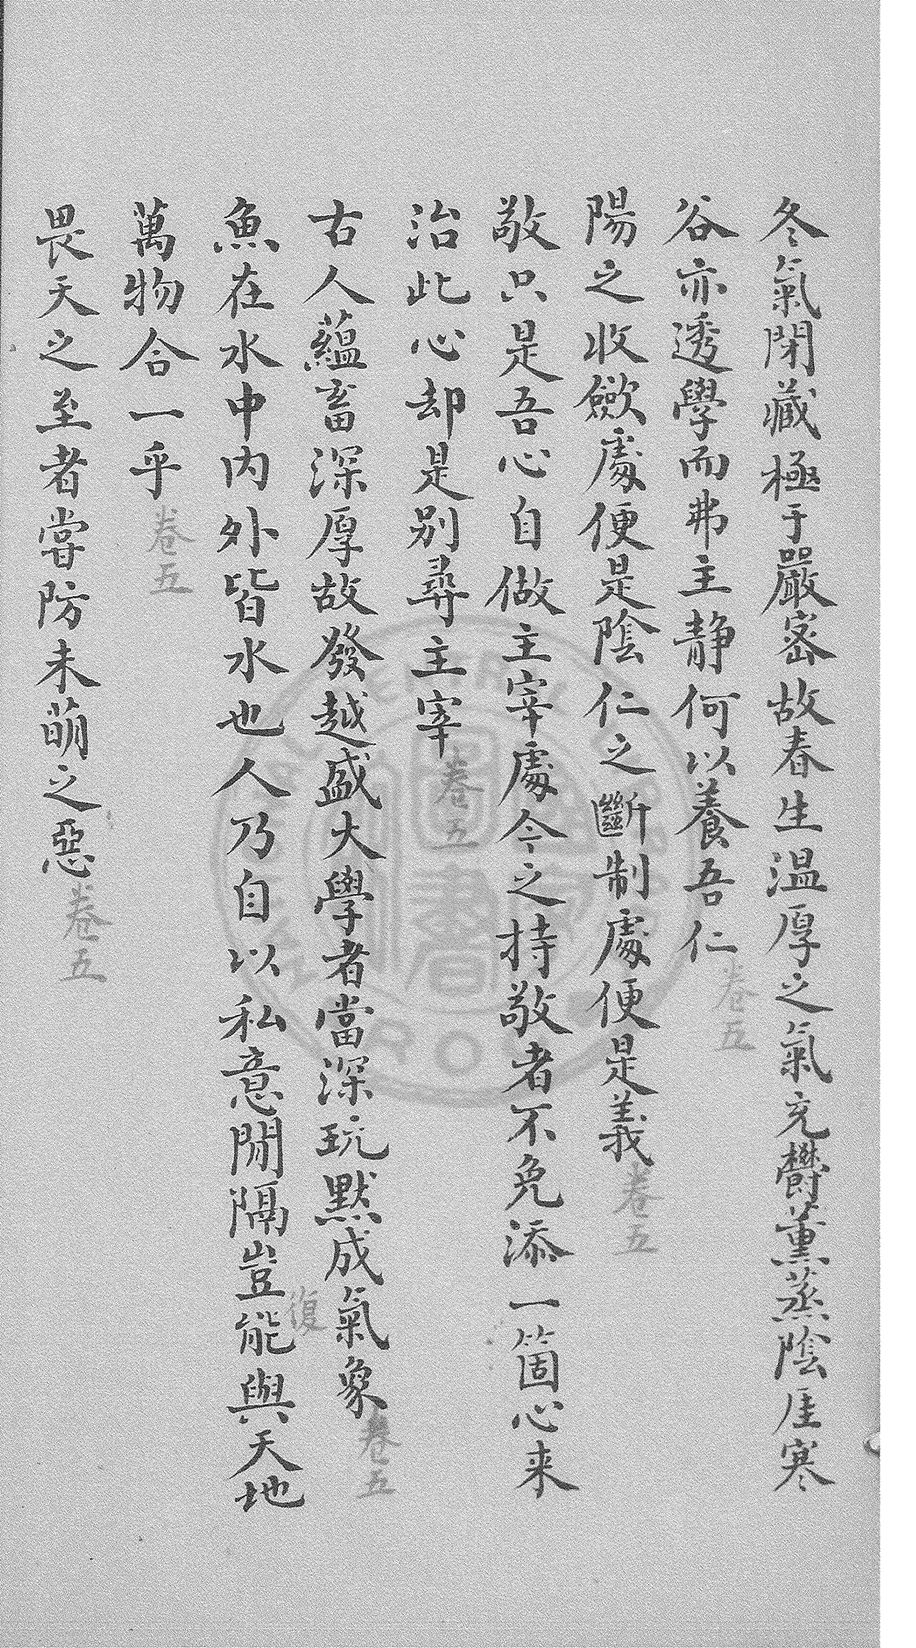 冬氣閉藏極于嚴密故春生温厚之氣充欝薰蒸陰厓寒
谷亦透學而弗主静何以養吾仁 卷五
陽之收歛處便是陰仁之斷制處便是義 卷五
敬只是吾心自做主宰處今之持敬者不免添一箇心来
治此心却是别尋主宰 卷五
古人蘊畜深厚故發越盛大學者當深玩默成氣象 卷五
復
魚在水中内外皆水也人乃自以私意間隔豈能與天地
萬物合一乎 卷五
畏天之至者甞防未萌之惡 卷五